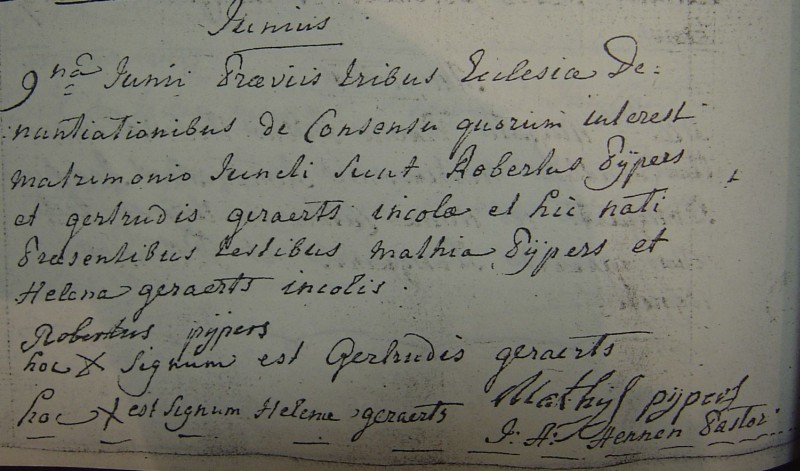 Junius
9na Junii Praeviis tribus Ecclesiae De=
nuntiationibus de Consensu quorum interest
matrimonio Juncti Sunt Robertus Pijpers
et gertrudis geraerts incolae et hic nati
Praesentibus testibus mathia Pijpers et
Helena geraerts incolis.
Robertus pijpers
hoc X Signum est Gertrudis geraerts
Mathijs pijpers
hoc X est Signum Helenae geraerts
J: A: Hennen Pastor